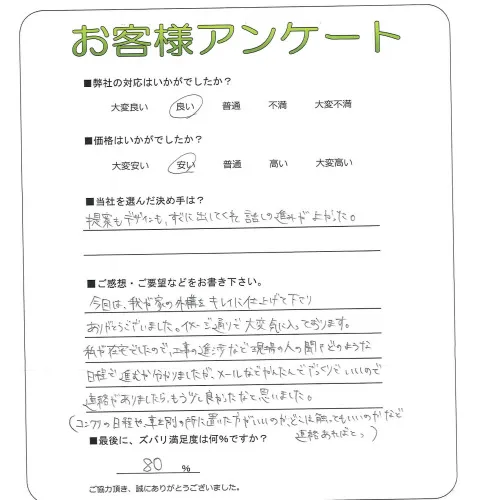 お客様アンケート
■弊社の対応はいかがでしたか？
大変良い 良い 普通 不満 大変不満
■価格はいかがでしたか？
大変安い 安い 普通 高い 大変高い
■当社を選んだ決め手は？
提案もデザインも、すぐに出してくれて話しの進みがよかった。
■ご感想・ご要望などをお書き下さい。
今回は、我が家の外構をキレイに仕上げて下さり
ありがとうございました。イメージ通りで大変気に入っております。
私が在宅でしたので、工事の進渉など現場の人の聞いてどのような
日程で進むか分かりましたが、メールなどかんたんでざっくりでいいので
連絡がありましたら、もう少し良かったなと思いました。
(コンクリの日程や、車を別の所に置いた方がいいのか、どこは触ってもいいのかなど
連絡あればと。)
■最後に、ズバリ満足度は何％ですか？
80 %
ご協力頂き、誠にありがとうございました。